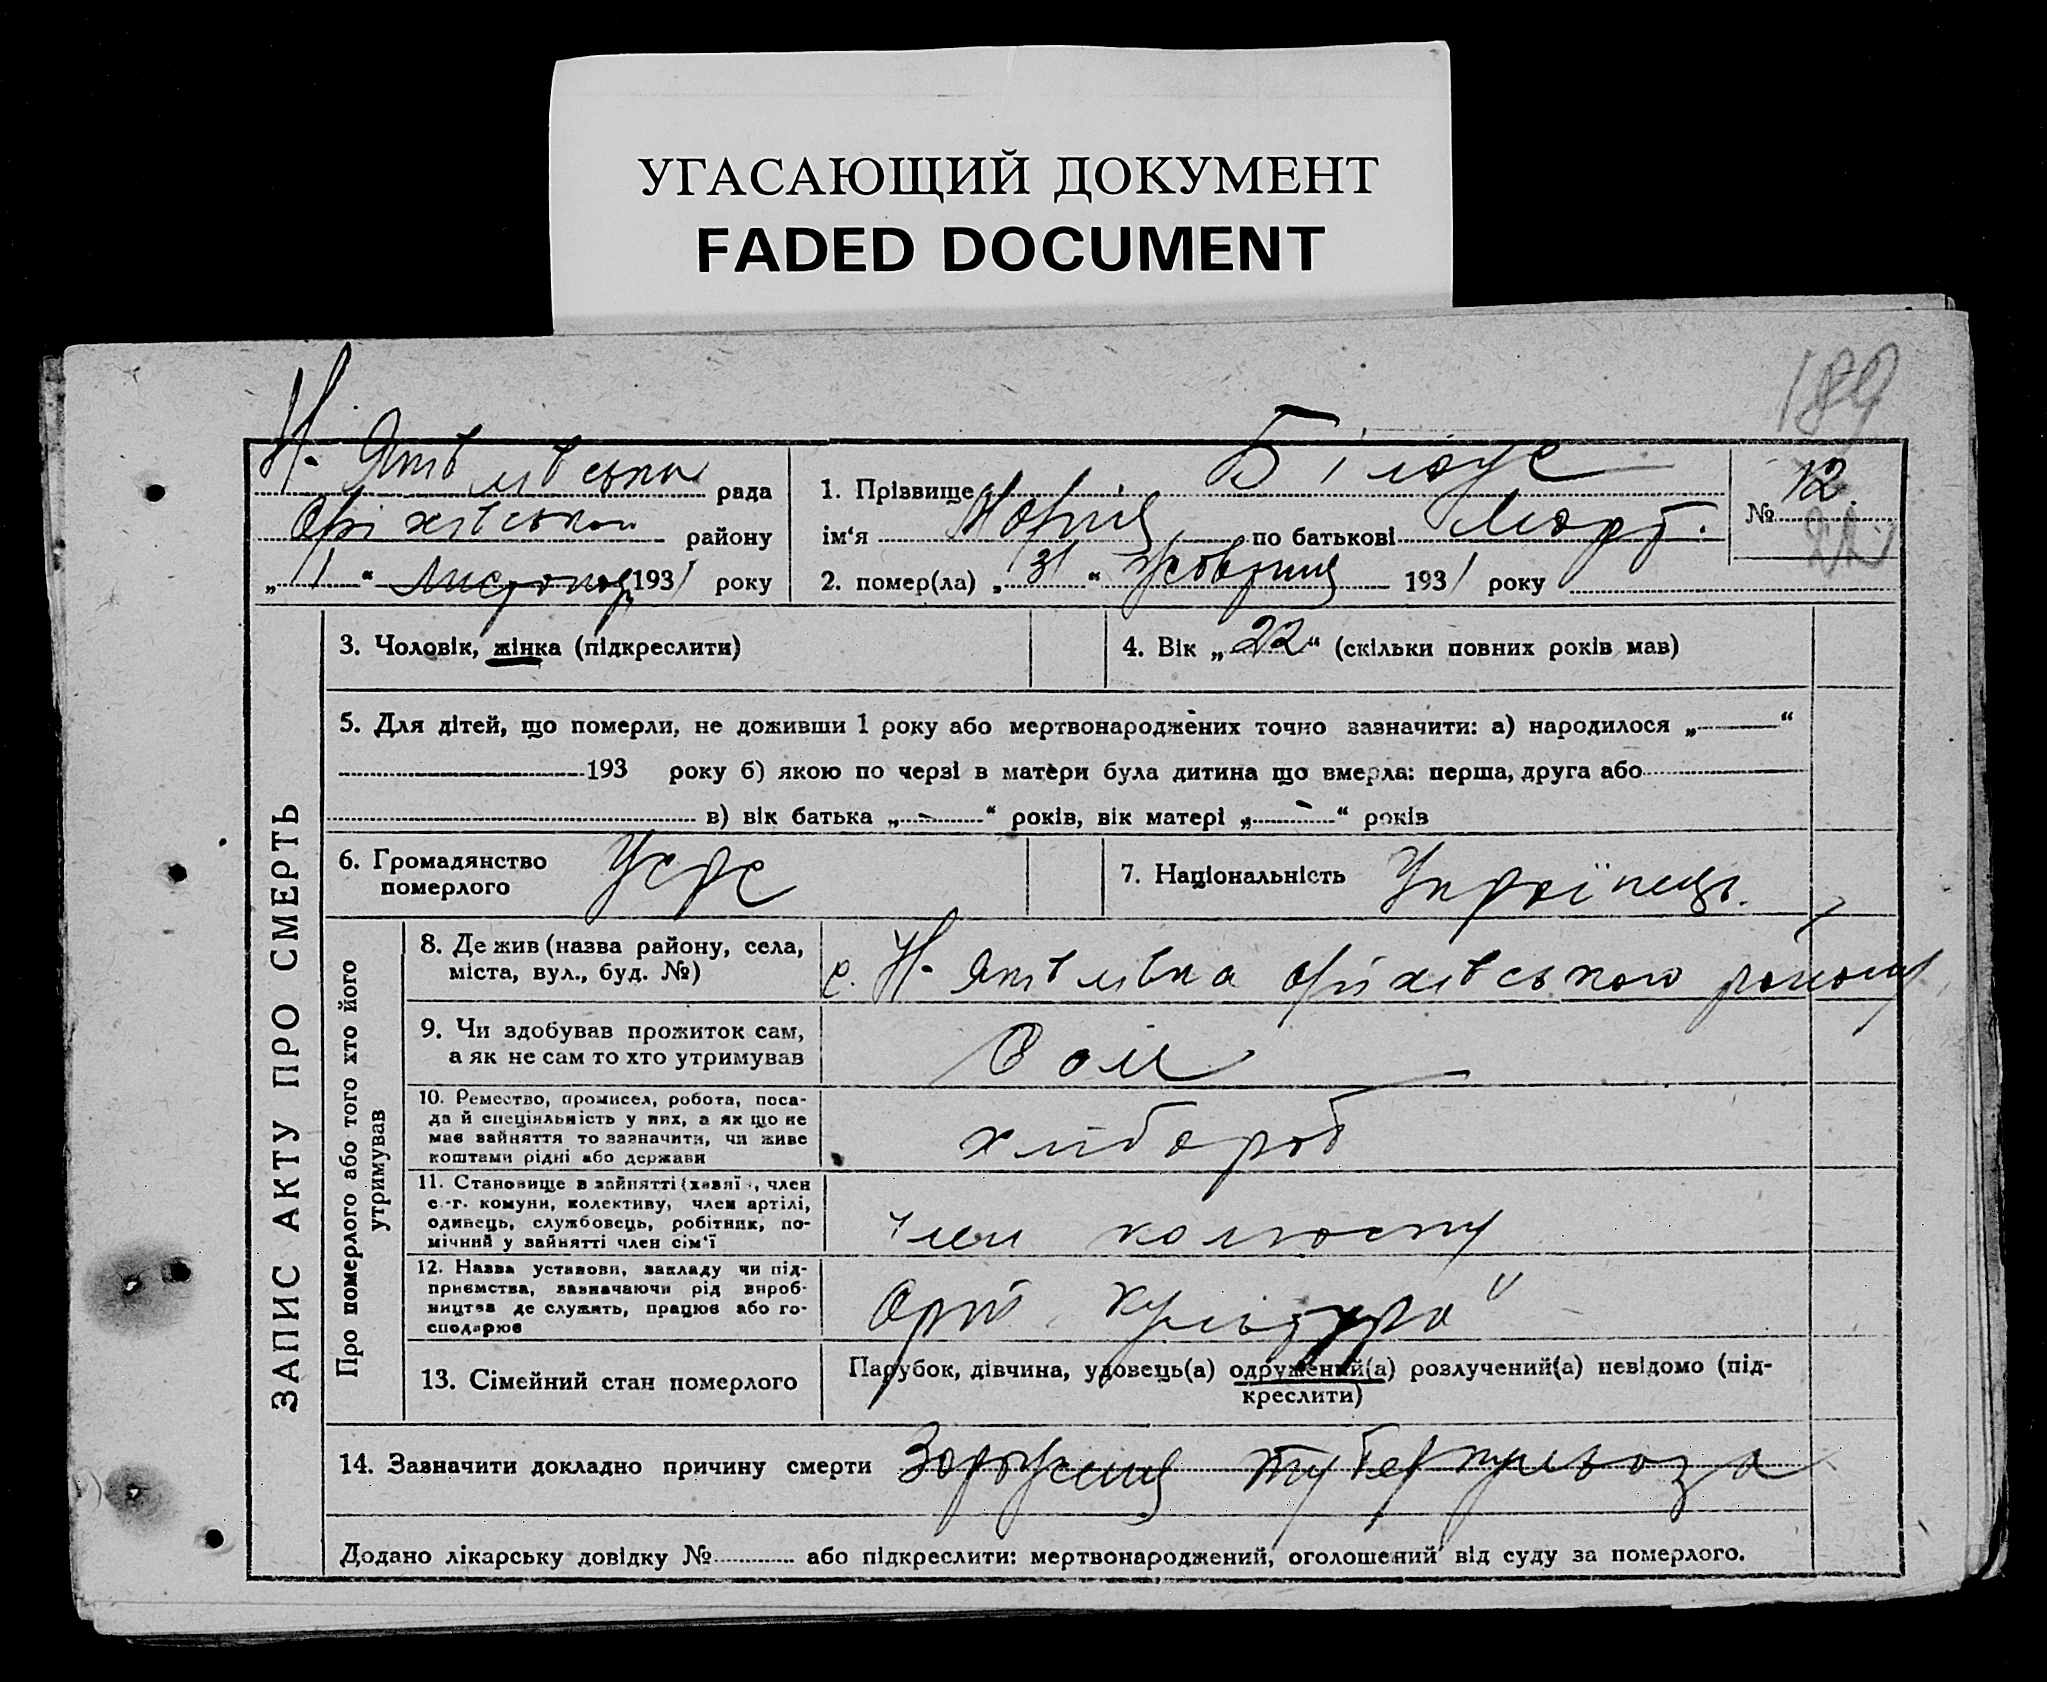 УГАСАЮЩИЙ ДОКУМЕНТ
FADED DOCUMENT
189
Н. Яківлівська рада
Оріхівського району
„1“ Листопад 1931 року
1. Прізвище Білоус
ім‘я Марія по батькові Март.
2. помер(ла) „31“ Жовтня 1931 року
№ 12
ЗАПИС АКТУ ПРО СМЕРТЬ
3. Чоловік, жінка (підкреслити)
4. Вік „22“ (скільки повних років мав)
5. Для дітей, що померли, не доживши 1 року або мертвонароджених точно зазначити: а) народилося „—“
193 року б) якою по черзі в матери була дитина що вмерла: перша, друга або
в) вік батька „-“ років, вік матері „-“ років
6. Громадянство
померлого
Усрс
7. Національність Українець.
Про померлого або того хто його
утримував
8. Де жив (назва району, села,
міста, вул., буд. №)
с. Н. Яківлівка Оріхівського району
9. Чи здобував прожиток сам,
а як не сам то хто утримував
Сам
10. Ремество, промисел, робота, поса-
да й спеціяльність у них, а як що не
має зайняття то зазначити, чи живе
коштами рідні або держави
хлібороб
11. Становище в зайнятті (хазяї, член
с.-г. комуни, колективу, член артілі,
одинець, службовець, робітник, по-
мічний у зайнятті член сім‘ї
член колгоспу
12. Назва установи, закладу чи під-
приємства, зазначаючи рід вироб-
ництва де служить, працює або го-
сподарює
Арт. Культура"
13. Сімейний стан померлого
Парубок, дівчина, удовець(а) одружений(а) розлучений(а) невідомо (під-
креслити)
14. Зазначити докладно причину смерти туберкульоза
Додано лікарську довідку № або підкреслити: мертвонароджений, оголошений від суду за померлого.